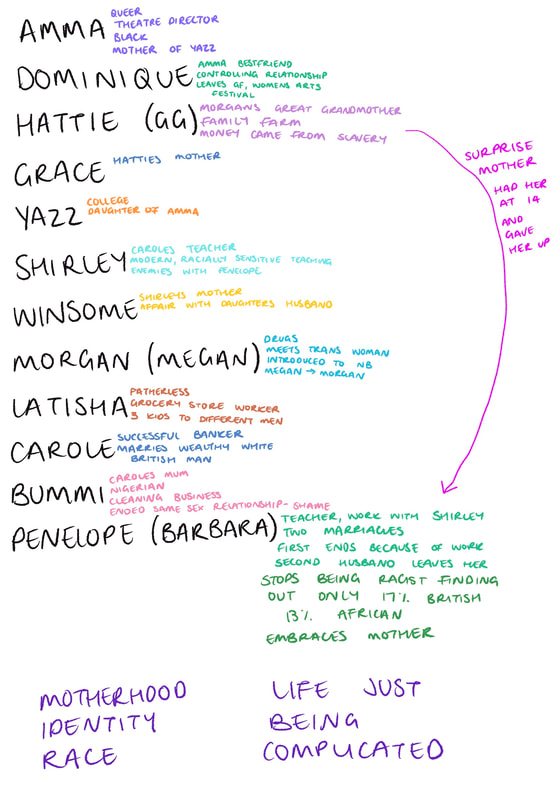 AMMA
QUEER
THEATRE DIRECTOR
BLACK
MOTHER OF YAZZ
DOMINIQUE
AMMA BESTFRIEND
CONTROLLING RELATIONSHIP
LEAVES GF, WOMENS ARTS
FESTIVAL
HATTIE (GG)
MORGANS GREAT GRANDMOTHER
FAMILY FARM
MONEY CAME FROM SLAVERY
SURPRISE
MOTHER
HAD HER
AT 14
AND
GAVE
HER UP
GRACE
HATTIES MOTHER
YAZZ
COLLEGE
DAUGHTER OF AMMA
SHIRLEY
CAROLES TEACHER
MODERN, RACIALLY SENSITIVE TEACHING
ENEMIES WITH PENELOPE
WINSOME
SHIRLEYS MOTHER
AFFAIR WITH DAUGHTERS HUSBAND
MORGAN (MEGAN)
DRUGS
MEETS TRANS WOMAN
INTRODUCED TO NB
MEGAN → MORGAN
LATISHA
FATHERLESS
GROCERY STORE WORKER
3 KIDS TO DIFFERENT MEN
CAROLE
SUCCESSFUL BANKER
MARRIES WEALTHY WHITE
BRITISH MAN
BUMMI
CAROLES MUM
NIGERIAN
CLEANING BUSINESS
ENDED SAME SEX RELATIONSHIP - SHAME
PENELOPE (BARBARA)
TEACHER, WORK WITH SHIRLEY
TWO MARRIAGES
FIRST ENDS BECAUSE OF WORK
SECOND HUSBAND LEAVES HER
STOPS BEING RACIST FINDING
OUT ONLY 17% BRITISH
13% AFRICAN
EMBRACES MOTHER
MOTHERHOOD
IDENTITY
RACE
LIFE JUST
BEING
COMPLICATED